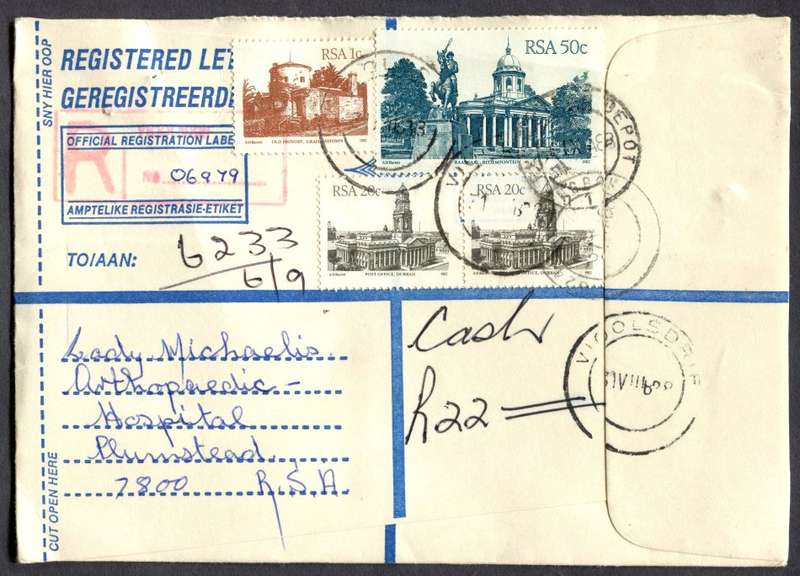 SNY HIER OOP
REGISTERED LET
GEREGISTREERDE
OFFICIAL REGISTRATION LABE
R
No.
06979
AMPTELIKE REGISTRASIE-ETIKET
RSA 1c
OLD PROVOST, GRAHAMSTOWN
1982
RSA 50c
RAADSAAL, BLOEMFONTEIN
RSA 20c
POST OFFICE, DURBAN
1982
RSA 20c
POST OFFICE, DURBAN
1982
DEPOT
TO/AAN:
6233
6/9
Lady Michaelis
Orthopaedic -
Hospital
Plumstead
7800 R.S.A.
Cash
R22
VIOOLSDRIF
CUT OPEN HERE